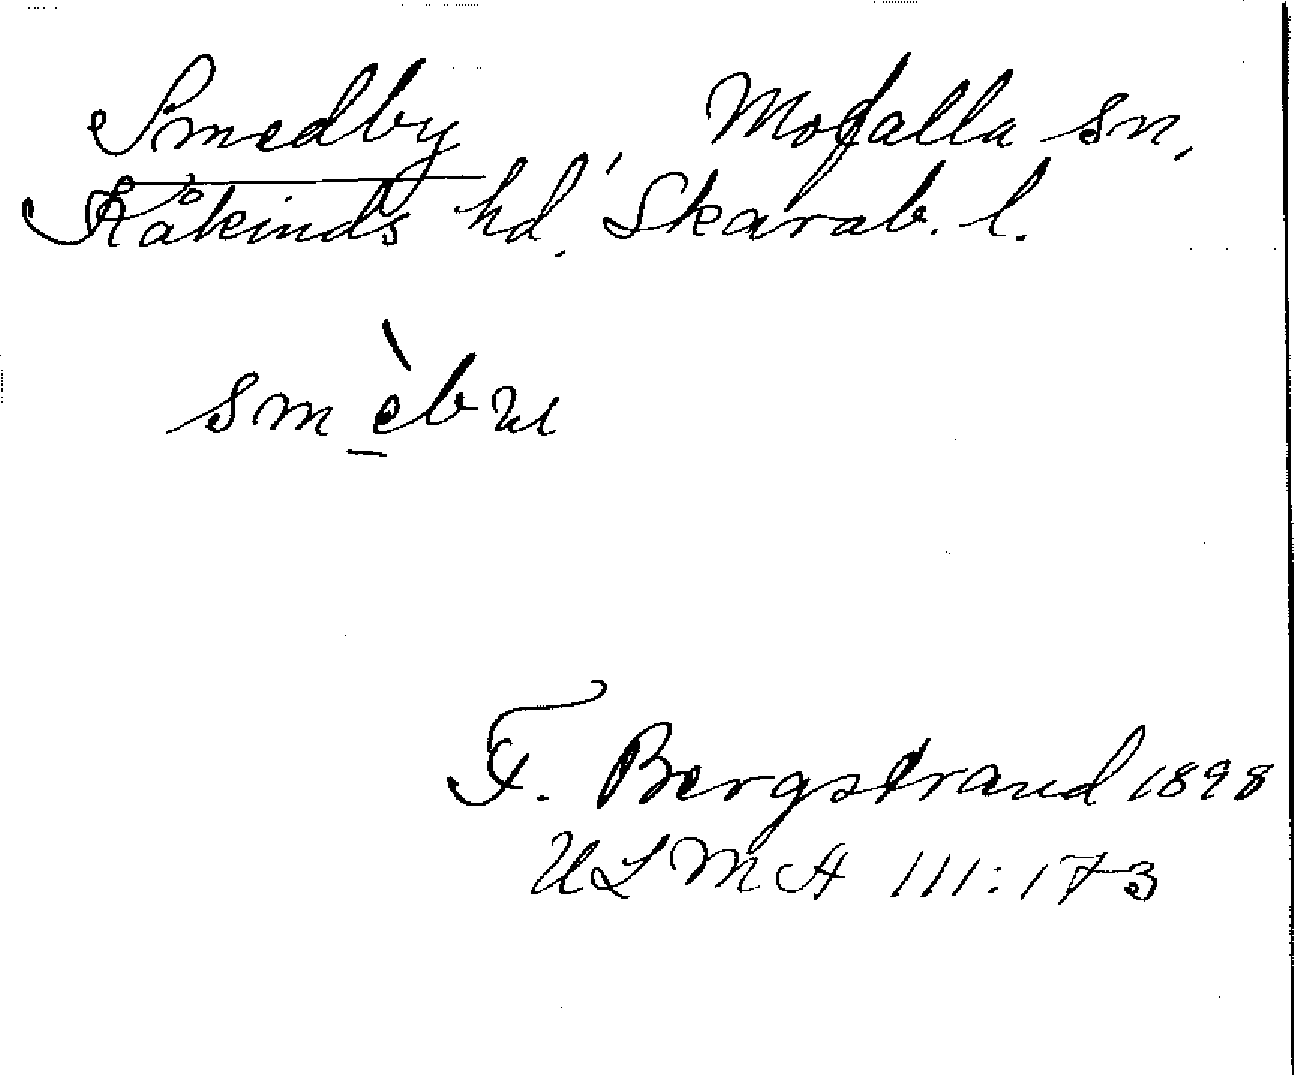 Smedby Mofalla sn,
Kåkinds hd. Skarab. l.
smèbu
F. Bergstrand 1898
ULMA 111:173